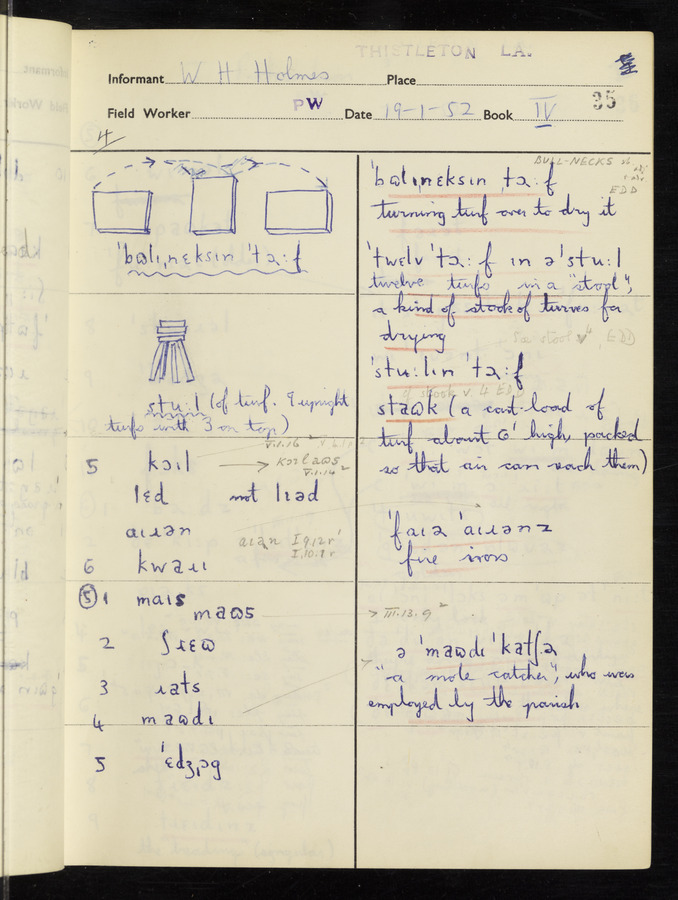 THISTLETON LA.
Informant W H Holmes Place
Field Worker PW Date 19-1-52 Book IV 35
4
ˈbɷlɩˌnɛksɪn ˈtɔ:f
stu:l (of turf. 9 upright
turfs with 3 on top)
V.1.16
5 kɔɩl → kɔɩlaɷs
V.1.14
lɛd not lɩəd
aɩɹən
aɩən I.9.12r
I.10.1r
6 kwaɹɩ
5 1 maɩs
maɷs
2 ʃɹɛɷ
3 ɹats
4 maɷdɩ
5 ˈɛdʒˌɒg
BULL-NECKS
EDD
ˈbɷlɩˌnɛksɪn ˌtɔ:f
turning turf over to dry it
ˈtwelv ˈtɔ:f ɪn ə ˈstu:l
twelve turfs in a "stool",
a kind of stook of turves for
drying
ˈstu:lɪn ˈtɔ:f
cf stook v 4 EDD
staɷk (a cart-load of
turf about 6' high, packed
so that air can reach them)
ˈfaɩə ˈaɩɹənz
fire irons
> III.13.9
ə ˈmaɷdɩ ˈkatʃə
"a mole catcher", who was
employed by the parish